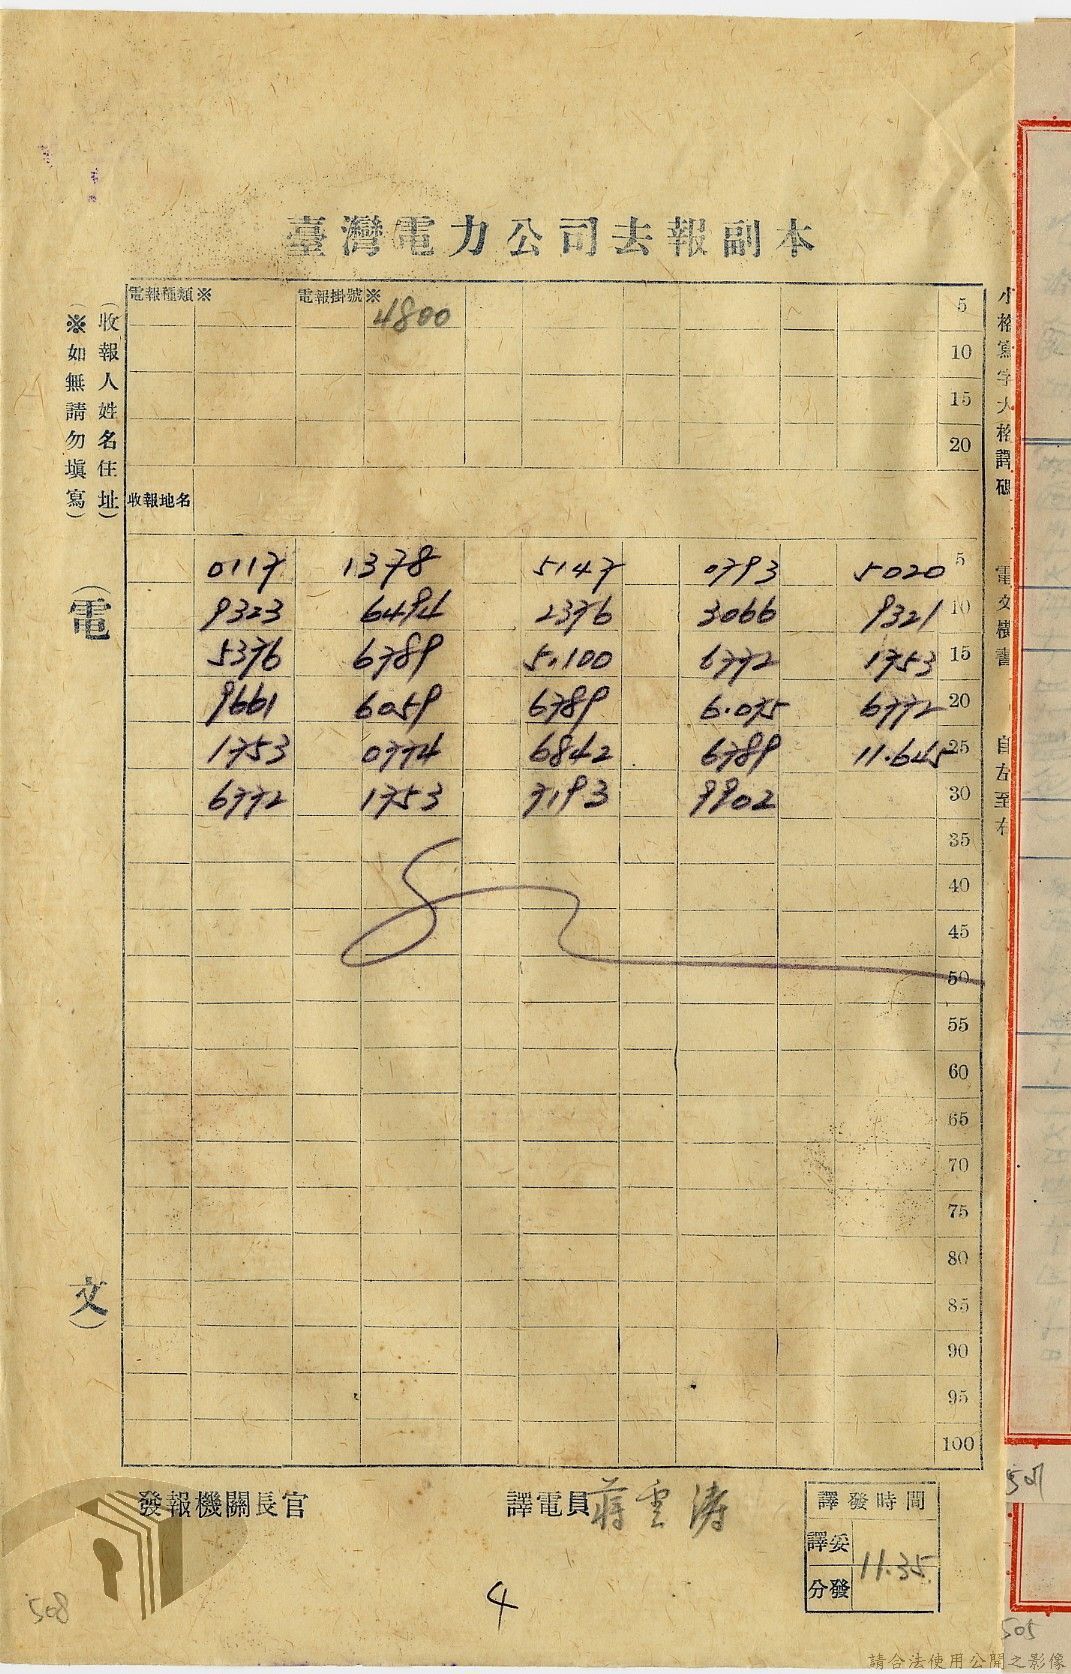 臺灣電力公司去報副本
電報種類※
電報掛號※
4800
5
10
15
20
收報地名
(收報人姓名住址)
(※如無請勿填寫)
(電文)
小格寫字大格譯碼
電文橫書
自左至右
0117 1378 5147 0793 5020 5
9323 6494 2376 3066 9321 10
5376 6789 5.100 6772 1753 15
9661 6059 6789 6.075 6772 20
1753 0774 6842 6789 11.645 25
6772 1753 7193 9902 30
35
40
45
50
55
60
65
70
75
80
85
90
95
100
發報機關長官
譯電員 蔣雲濤
譯發時間
譯妥
分發
11.35
4
508
507
505
請合法使用公開之影像